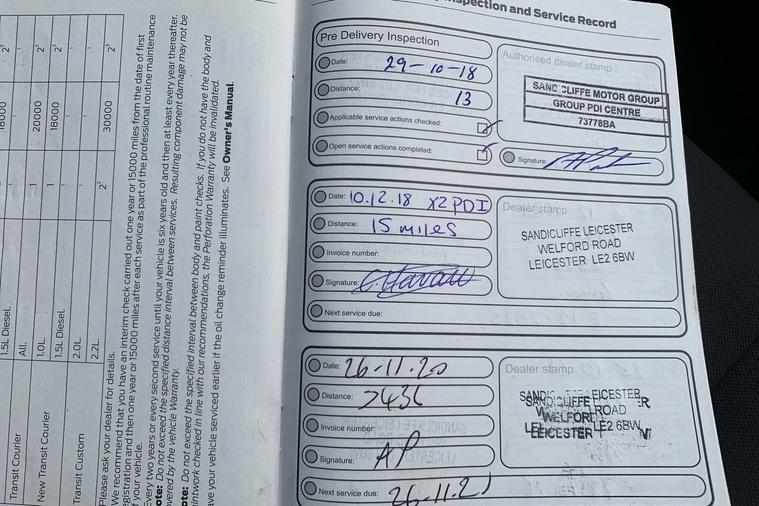 Inspection and Service Record
Pre Delivery Inspection
Date: 29-10-18
Distance: 13
Applicable service actions checked:
Open service actions completed:
Authorised dealer stamp
SANDICLIFFE MOTOR GROUP
GROUP PDI CENTRE
73778BA
Signature:
Date: 10.12.18 X2 PDI
Distance: 15 miles
Invoice number:
Signature:
Next service due:
Dealer stamp
SANDICLIFFE LEICESTER
WELFORD ROAD
LEICESTER LE2 6BW
Date: 26-11-20
Distance: 7436
Invoice number:
Signature: AP
Next service due: 26-11-21
Dealer stamp
SANDICLIFFE LEICESTER
WELFORD ROAD
LEICESTER LE2 6BW
18000 2
20000 2
18000 2
30000 2
1.5L Diesel.
Transit Courier All.
New Transit Courier 1.0L.
1.5L Diesel.
Transit Custom 2.0L.
2.2L.
Please ask your dealer for details.
We recommend that you have an interim check carried out one year or 15000 miles from the date of first
registration and then one year or 15000 miles after each service as part of the professional routine maintenance
of your vehicle.
Every two years or every second service until your vehicle is six years old and then at least every year thereafter.
Note: Do not exceed the specified distance interval between services. Resulting component damage may not be
covered by the vehicle Warranty.
Note: Do not exceed the specified interval between body and paint checks. If you do not have the body and
paintwork checked in line with our recommendations, the Perforation Warranty will be invalidated.
Have your vehicle serviced earlier if the oil change reminder illuminates. See Owner's Manual.